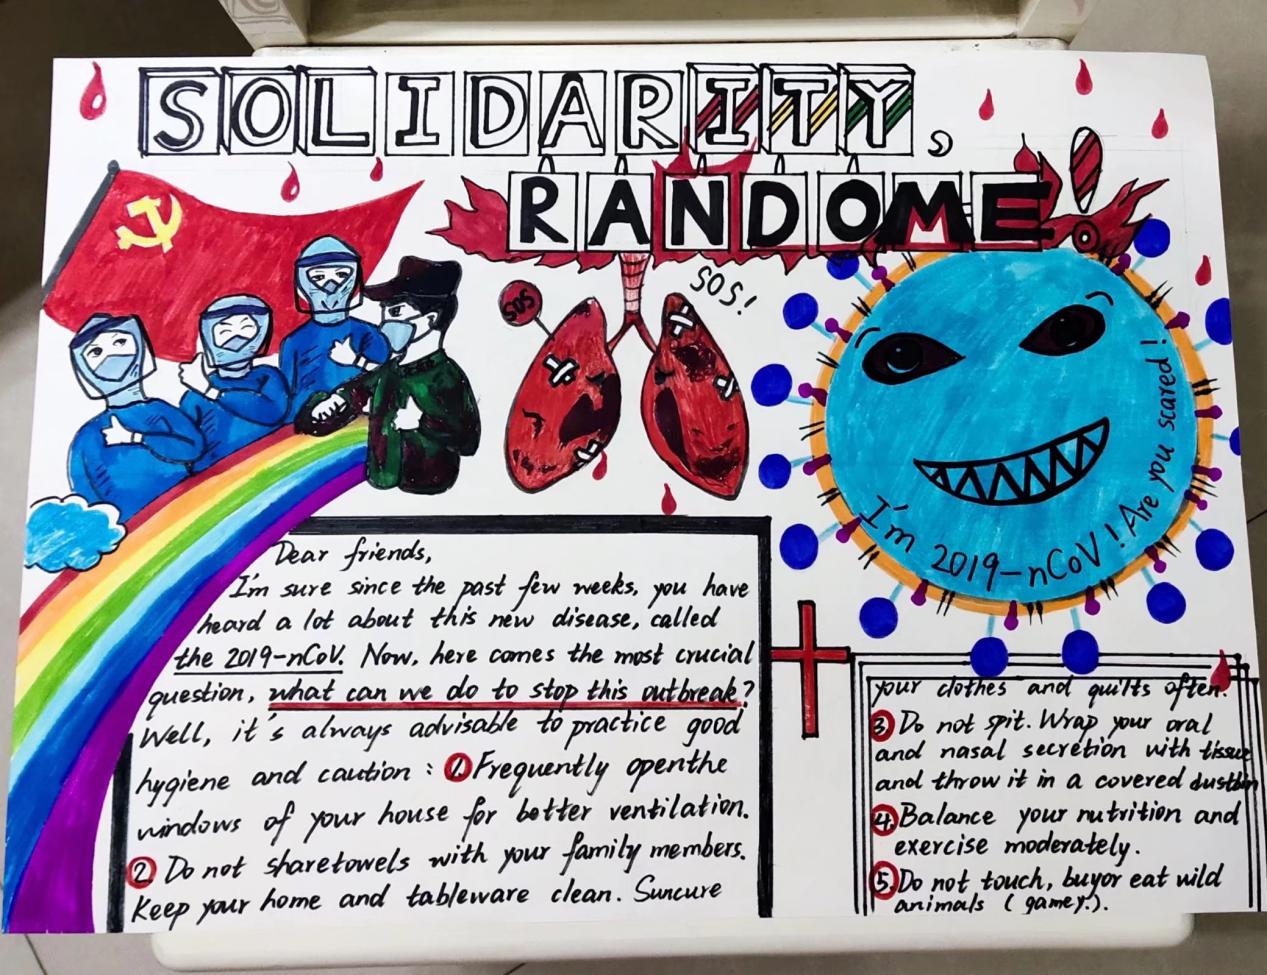 SOLIDARITY,
RANDOME!
SOS
SOS!
I'm 2019-nCoV! Are you scared!
Dear friends,
I'm sure since the past few weeks, you have
heard a lot about this new disease, called
the 2019-nCoV. Now, here comes the most crucial
question, what can we do to stop this outbreak?
Well, it's always advisable to practice good
hygiene and caution: 1. Frequently openthe
windows of your house for better ventilation.
2. Do not sharetowels with your family members.
Keep your home and tableware clean. Suncure
your clothes and quilts often.
3. Do not spit. Wrap your oral
and nasal secretion with tissue
and throw it in a covered dustbin
4. Balance your nutrition and
exercise moderately.
5. Do not touch, buyor eat wild
animals (gamey.).